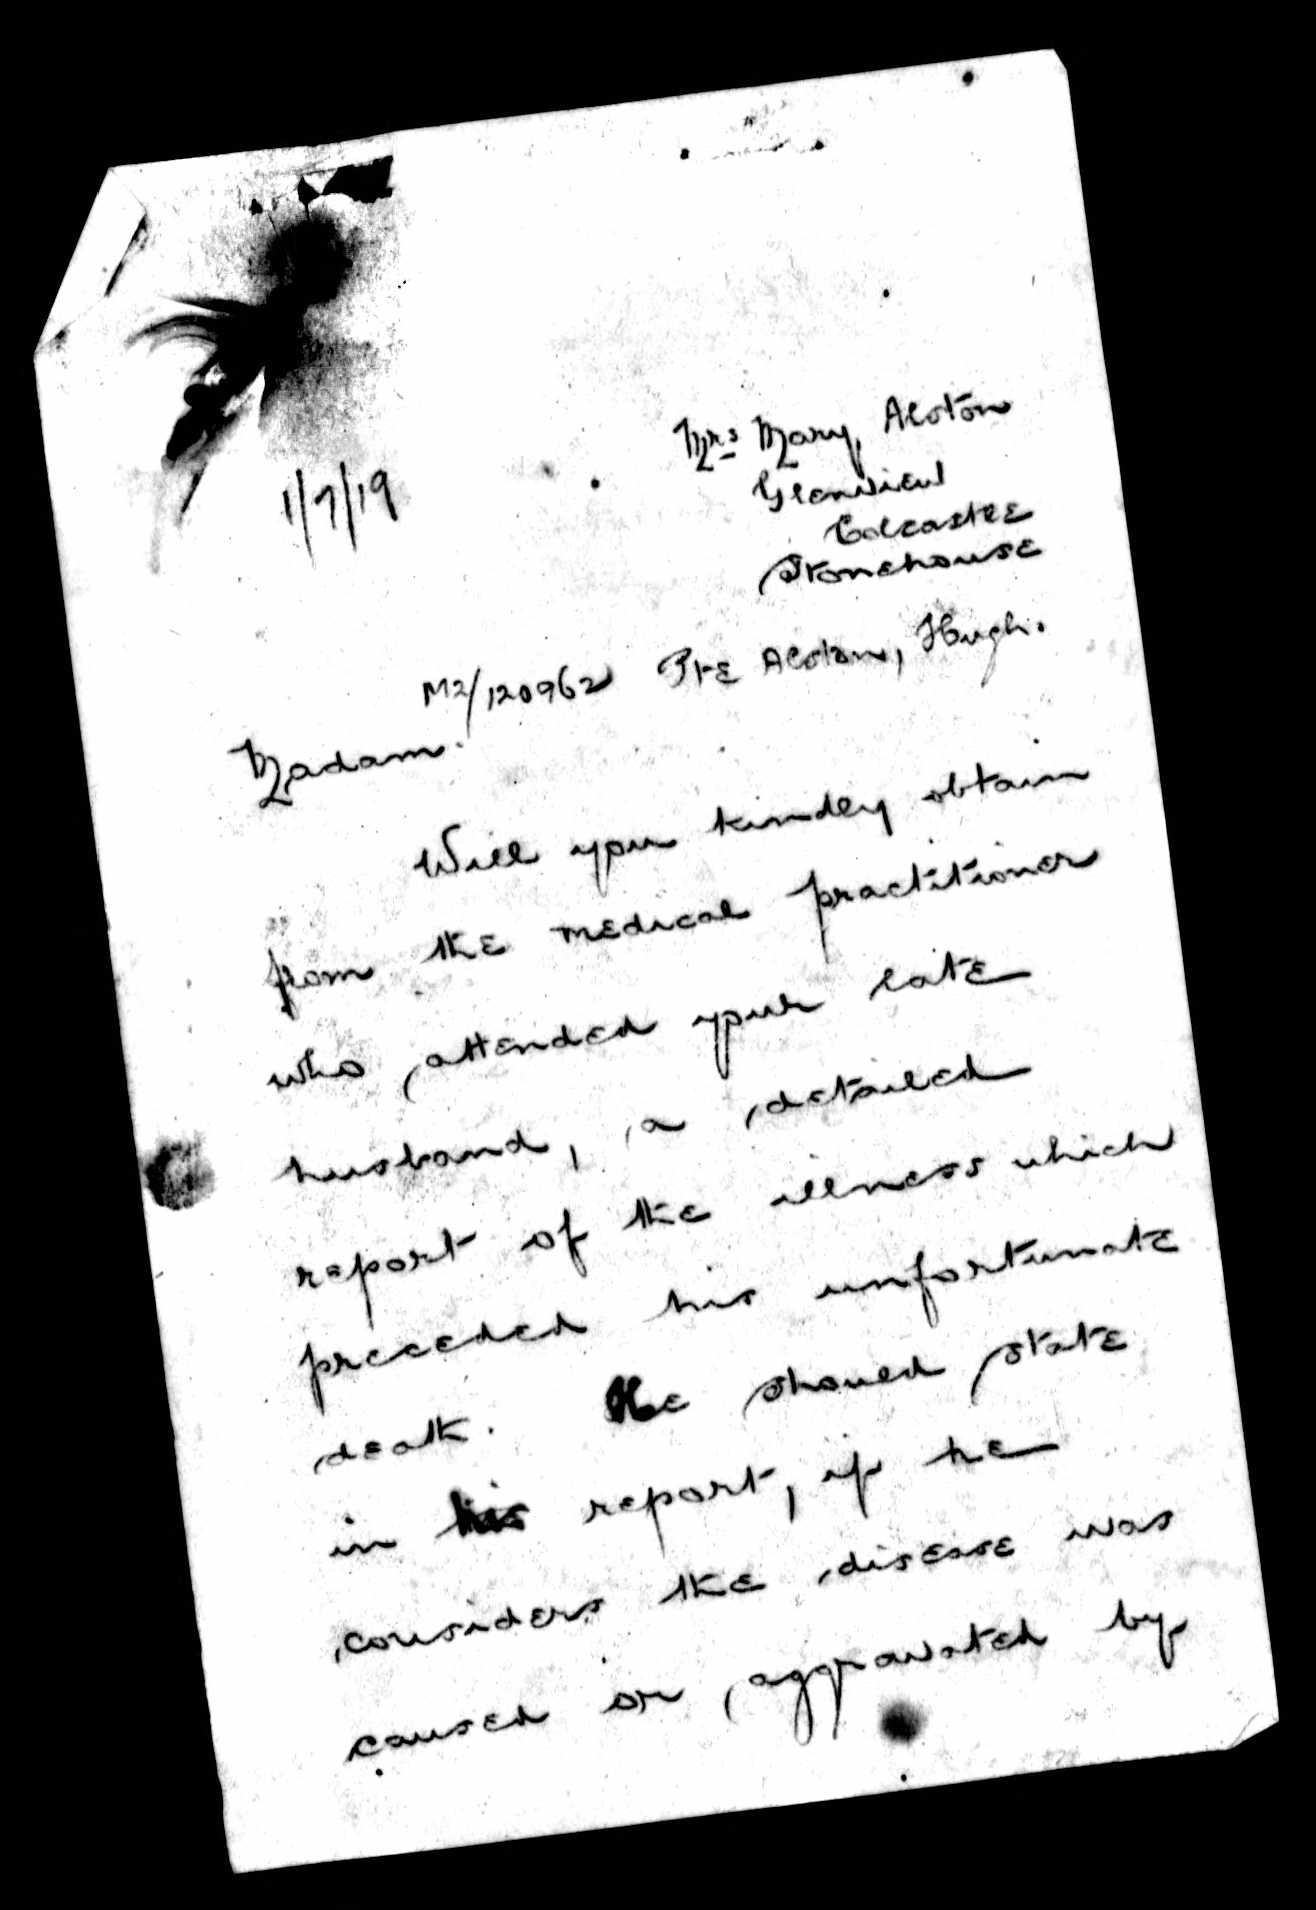 Mrs Mary, Alston
Glenview
Colcastle
Stonehouse
1/7/19
M2/120962 Pte Alston, Hugh.
Madam.
Will you kindly obtain
from the medical practitioner
who attended your late
husband, a detailed
report of the illness which
preceded his unfortunate
death. He should state
in his report, if he
considers the disease was
caused or aggravated by